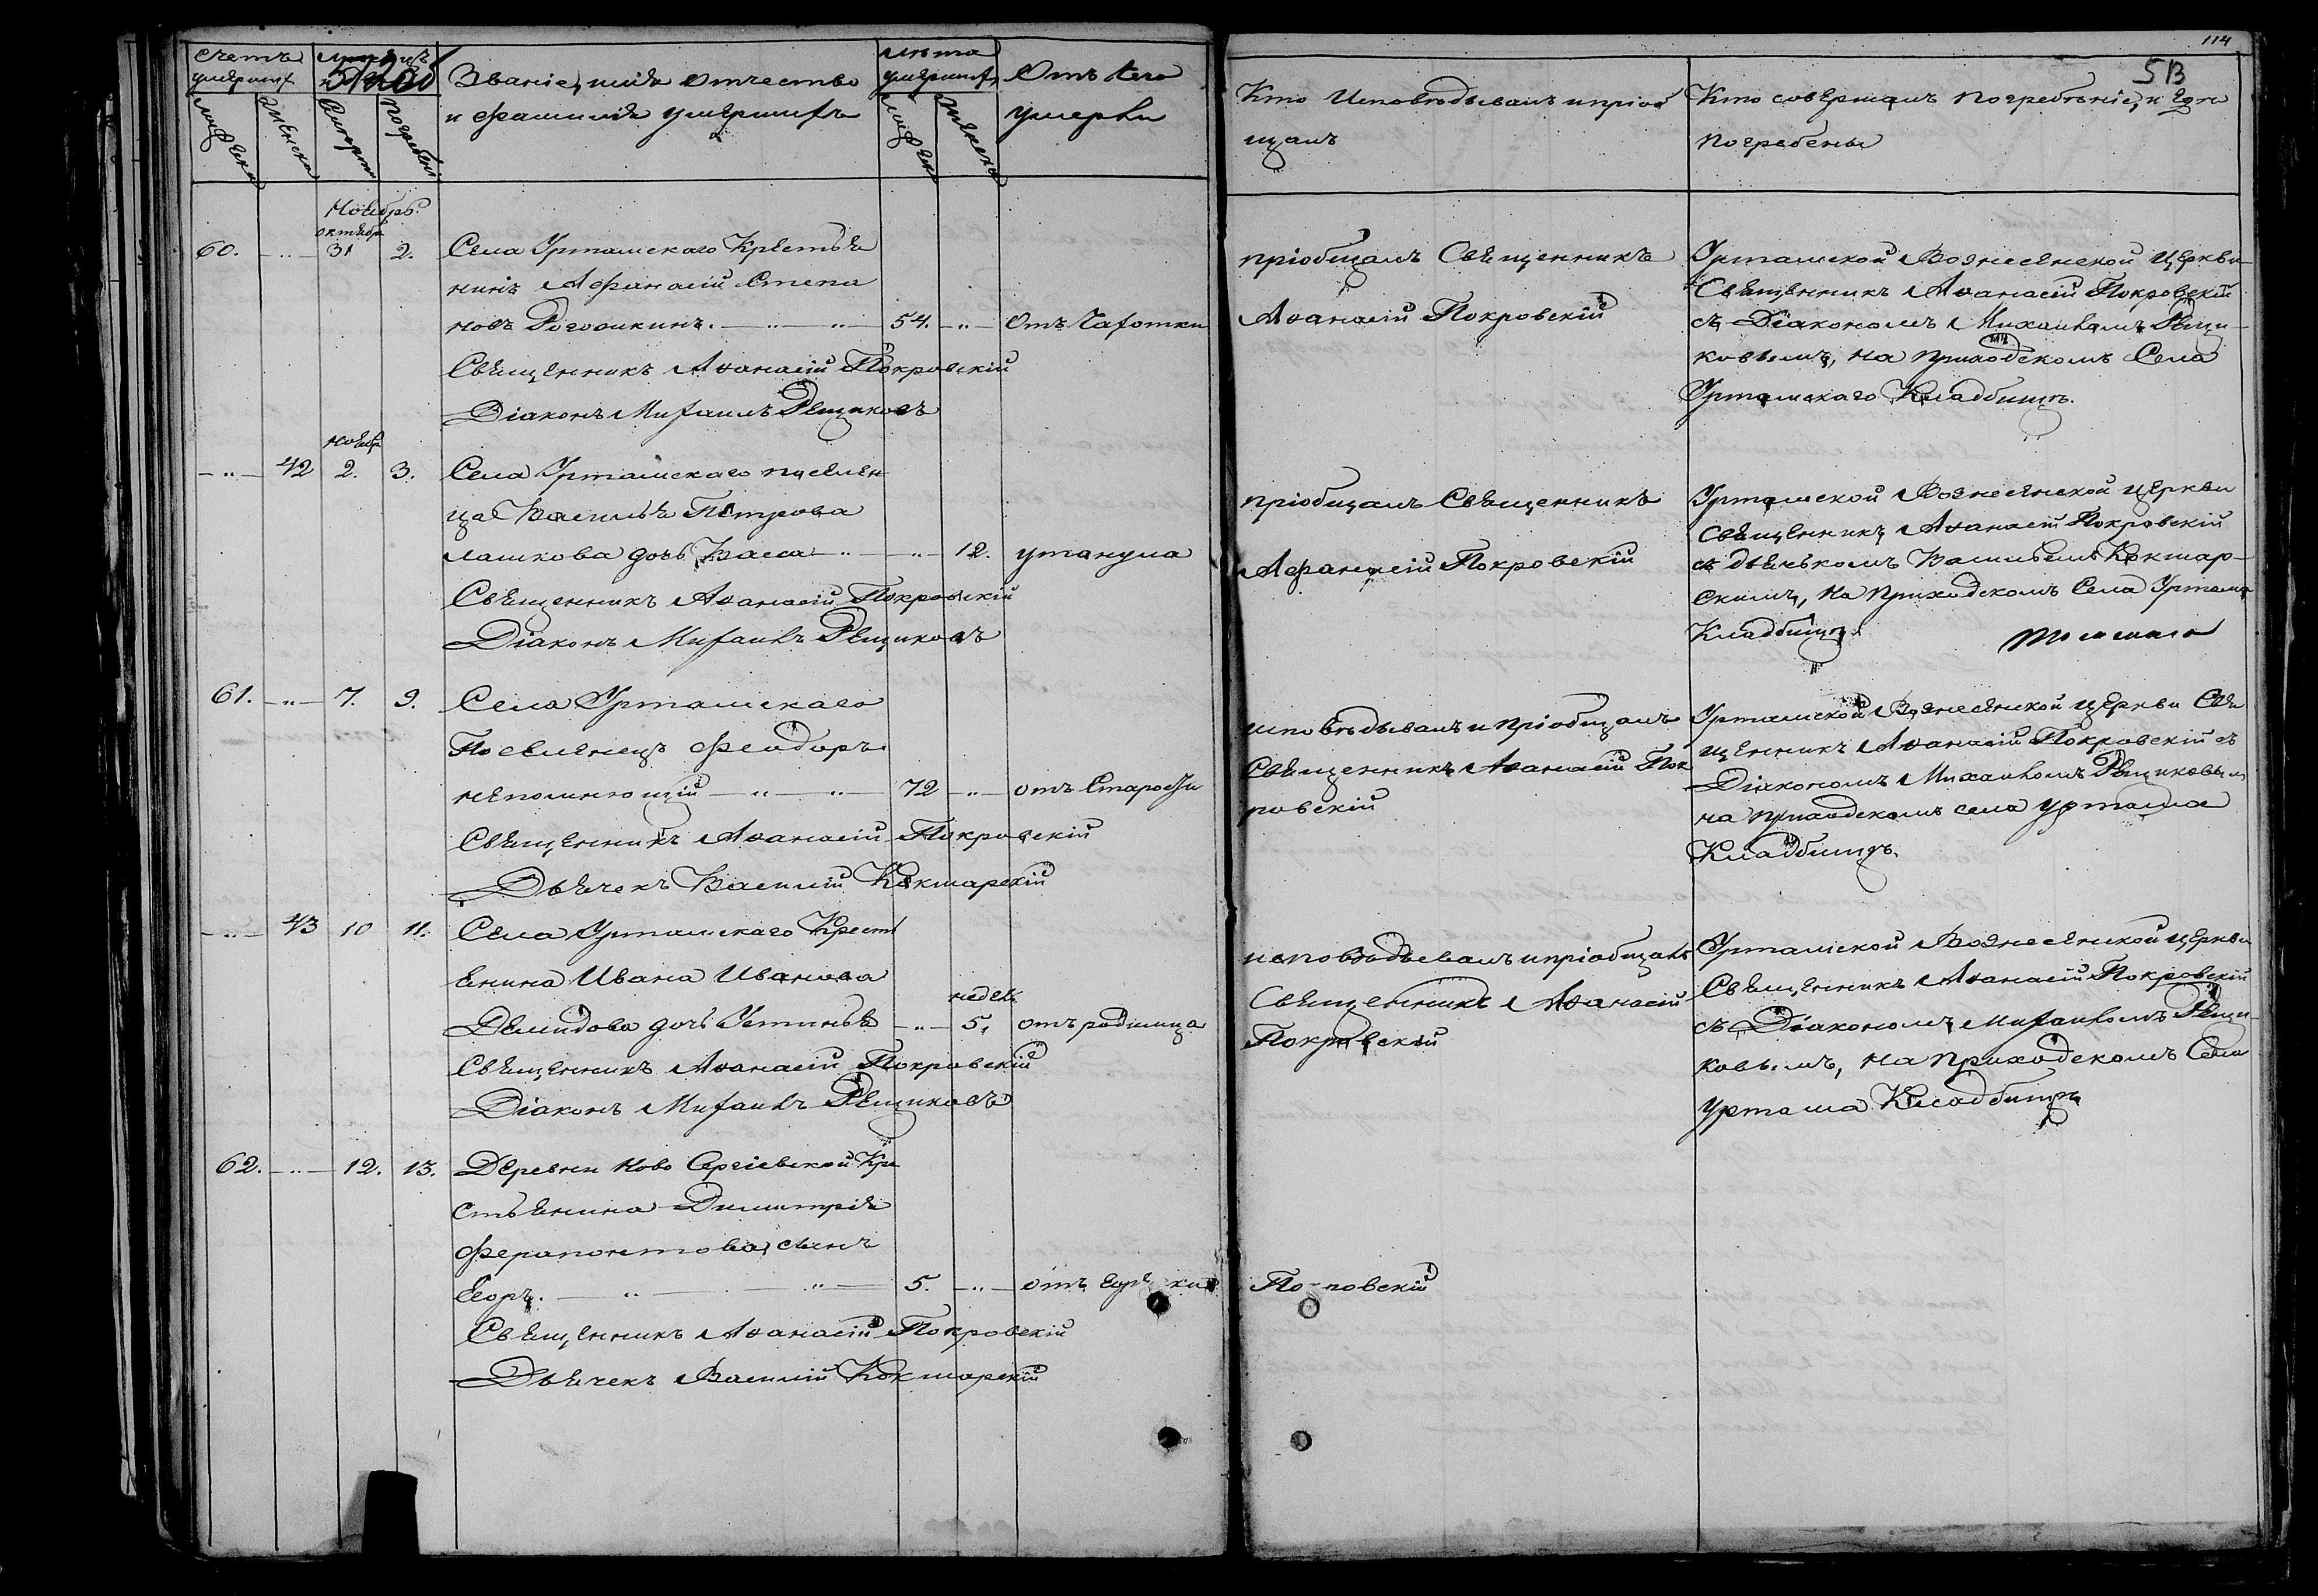 Счетъ умершихъ
Мужска
Женска
Смерти
Погребен
Званіе, имя отчество
и фамилія умершихъ
Лѣта
умершихъ
Мужска
Женска
Отъ чего
умерли
Ноябрь.
октябр
60. 31 2. Села Уртамскаго Крестья
нинъ Афанасій Степа
новъ 54. Отъ Чахотки
Священникъ Аѳанасій Покровскій
Діаконъ Михаилъ Рещиковъ
Ноябр
42 2. 3. Села Уртамскаго поселен
ца Василья Петрова
лашкова дочь Васса 12. утанула
Священникъ Аѳанасій Покровскій
Діаконъ Михаилъ Рещиковъ
61. 7. 9. Села Уртамскаго
Поселенецъ Феодоръ
непомнющій 72 отъ Старости
Священникъ Аѳанасій Покровскій
Дьячекъ Василій Кокшарскій
43 10 11. Села Уртамскаго Крестя
енина Ивана Иванова
недел.
Демидова дочь Устинья 5. отъ родимца
Священникъ Аѳанасій Покровскій
Діаконъ Михаилъ Рещиковъ
62. 12. 13. Деревни Ново Сергіевской Кре
стьенина Димитрія
Ферапонтова сынъ
Егоръ. 5. отъ
Священникъ Аѳанасій Покровскій
Дьячекъ Василій Кокшарскій
114
513
Кто Исповѣдывалъ и пріоб
щалъ
Кто совершалъ погребѣніе, и гдѣ
погребены
пріобщалъ Священникъ
Аѳанасій Покровскій
Уртамской Вознесенской Церкви
Священникъ Аѳанасій Покровскій
съ Діакономъ Михаиломъ Рещи-
ковымъ, на приходскомъ Села
Уртамскаго Кладбищѣ.
пріобщалъ Священникъ
Афанасій Покровскій
Уртамской Вознесенской церкви
Священникъ Аѳанасій Покровскій
съ дьячькомъ Васильемъ Кокшар-
скимъ, на приходскомъ Села Уртама
Кладбищѣ
исповѣдывалъ и пріобщалъ
Священникъ Аѳанасій Пок
ровскій
Уртамской Вознесенской церкви Свя
щенникъ Аѳанасій Покровскій съ
Діакономъ Михаиломъ Рещиковым
на приходскомъ села Уртама
Кладбищѣ.
исповѣдывалъ и пріобщалъ
Священникъ Аѳанасій
Покровскій
Уртамской Вознесенской церкви
Священникъ Аѳанасій Покровскій
съ Діакономъ Михаиломъ Рещи-
ковымъ, на приходскомъ Села
Уртама Кладбищѣ